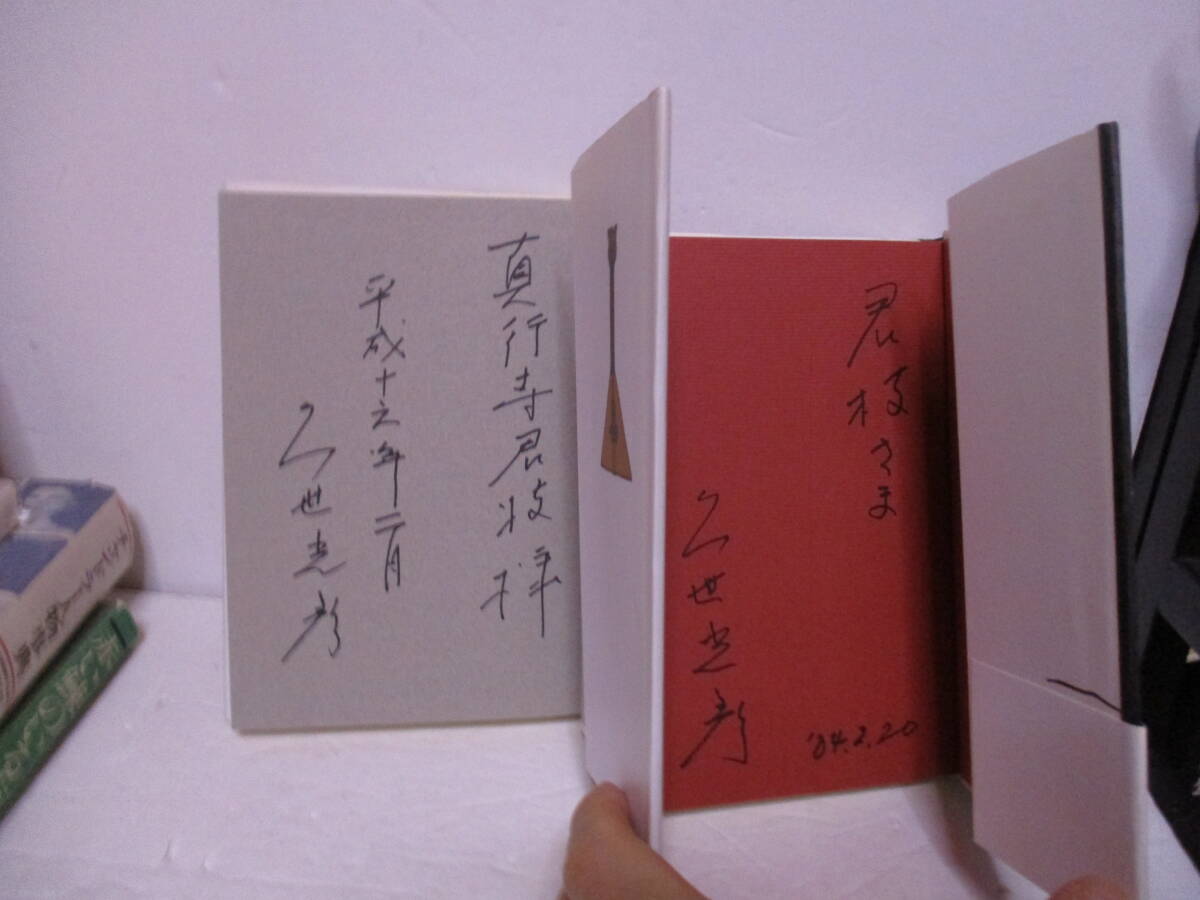 真行寺君枝様
平成十六年二月
久世光彦
君枝さま
久世光彦
'04.2.20